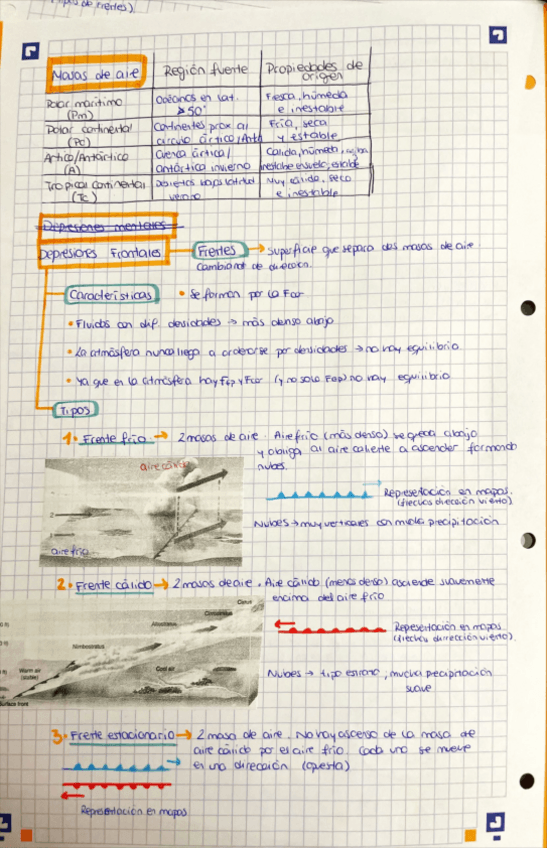 tipos de frentes).
Masas de aire
Región fuente
Propiedades de origen
Polar marítimo (Pm)
Océanos en lat. >50°
Fresca, húmeda e inestable
Polar continental (Pc)
Continentes prox al círculo ártico/Anta
Fría, seca y estable
Artico/Antártico (A)
Cuenca ártica/ antártica invierno
Calida, húmeda,
Tropical continental (Tc)
verano
Muy cálida, seca e inestable
Depresiones mentales
Depresiones Frontales
Frentes → superficie que separa dos masas de aire.
cambian de dirección.
Características • Se forman por la Fcor
• Fluidos con dif. densidades → más denso abajo
• La atmósfera nunca llega a ordenarse por densidades → no hay equilibrio
• Ya que en la atmósfera hay Fgp y Fcor (y no solo Fgp) no hay equilibrio
Tipos
1. Frente frío → 2 masas de aire. Aire frío (más denso) se queda abajo
y obliga al aire caliente a ascender formando
nubes.
aire cálido
aire frío
Representación en mapas.
(flechas dirección viento)
Nubes → muy verticales con mucha precipitación
2. Frente cálido → 2 masas de aire. Aire cálido (menos denso) asciende suavemente
encima del aire frío
Cirrus
Cirrostratus
Altostratus
Nimbostratus
Warm air
(stable)
Cool air
Surface front
Representación en mapas
(flechas dirección viento)
Nubes → tipo estrato, mucha precipitación
suave
3. Frente estacionario → 2 masa de aire. No hay ascenso de la masa de
aire cálido por es aire frío. Cada uno se mueve
en una dirección (opuesta)
Representación en mapas